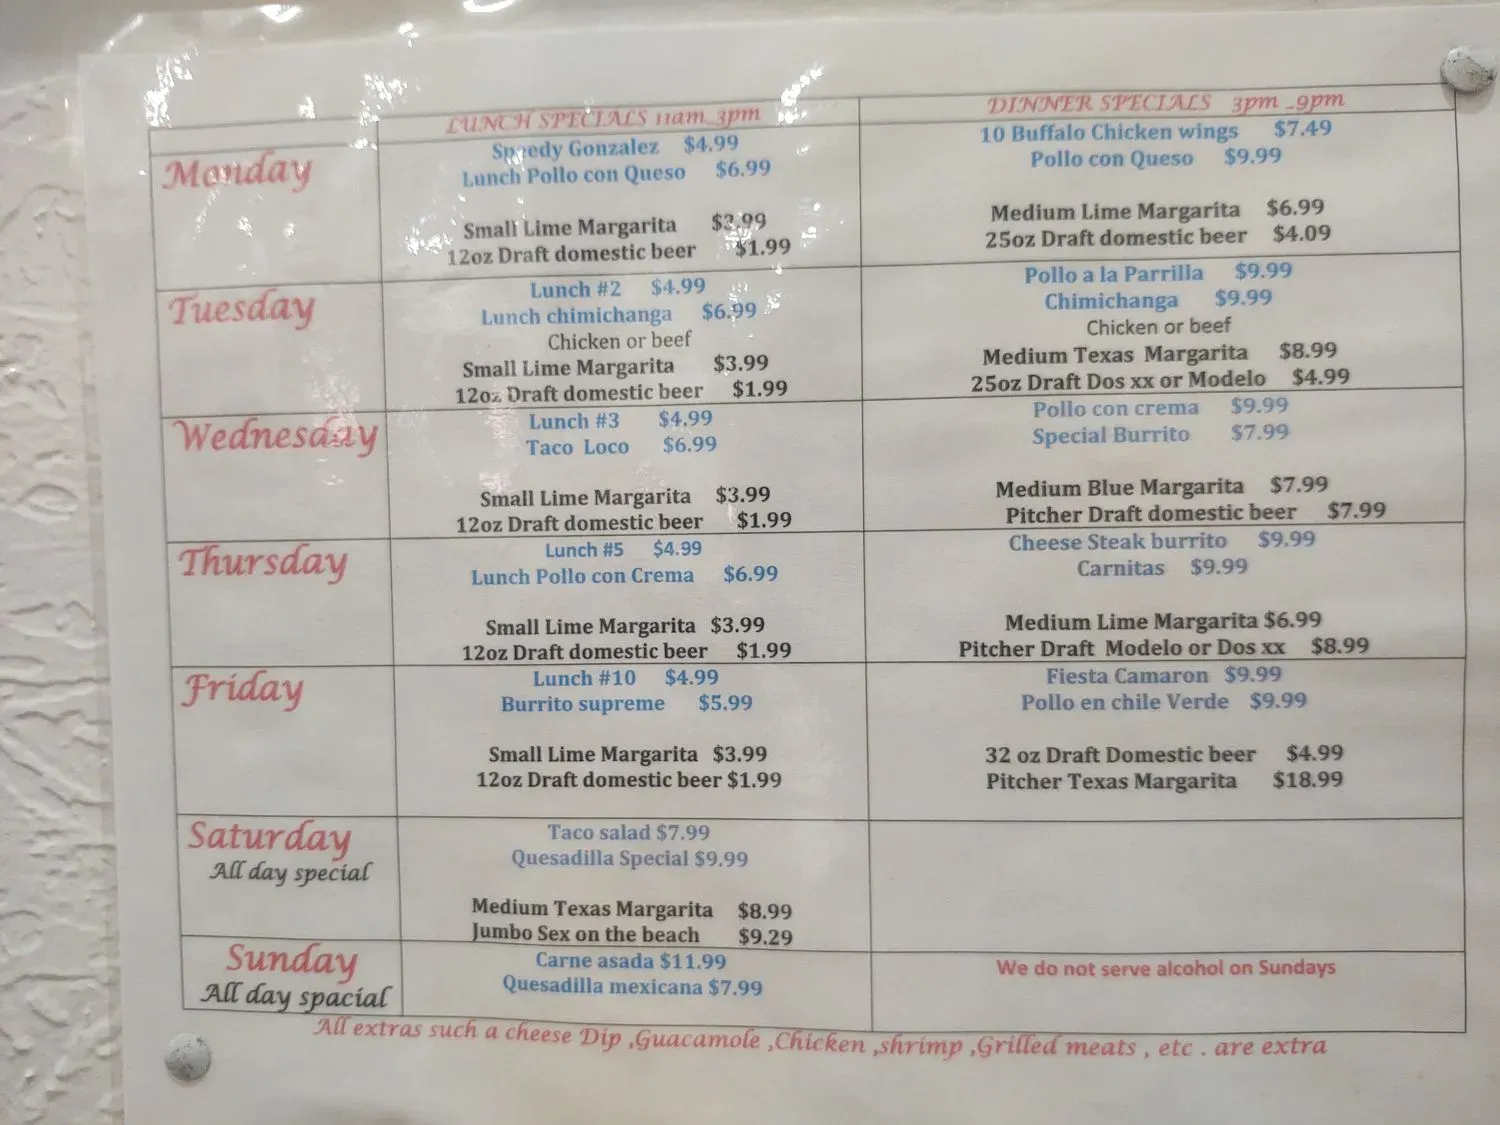 LUNCH SPECIALS 11am_3pm
DINNER SPECIALS 3pm _9pm
Monday
Speedy Gonzalez $4.99
Lunch Pollo con Queso $6.99
Small Lime Margarita
12oz Draft domestic beer $1.99
10 Buffalo Chicken wings $7.49
Pollo con Queso $9.99
Medium Lime Margarita $6.99
25oz Draft domestic beer $4.09
Tuesday
Lunch #2 $4.99
Lunch chimichanga $6.99
Chicken or beef
Small Lime Margarita $3.99
12oz Draft domestic beer $1.99
Pollo a la Parrilla $9.99
Chimichanga $9.99
Chicken or beef
Medium Texas Margarita $8.99
25oz Draft Dos xx or Modelo $4.99
Wednesday
Lunch #3 $4.99
Taco Loco $6.99
Small Lime Margarita $3.99
12oz Draft domestic beer $1.99
Pollo con crema $9.99
Special Burrito $7.99
Medium Blue Margarita $7.99
Pitcher Draft domestic beer $7.99
Thursday
Lunch #5 $4.99
Lunch Pollo con Crema $6.99
Small Lime Margarita $3.99
12oz Draft domestic beer $1.99
Cheese Steak burrito $9.99
Carnitas $9.99
Medium Lime Margarita $6.99
Pitcher Draft Modelo or Dos xx $8.99
Friday
Lunch #10 $4.99
Burrito supreme $5.99
Small Lime Margarita $3.99
12oz Draft domestic beer $1.99
Fiesta Camaron $9.99
Pollo en chile Verde $9.99
32 oz Draft Domestic beer $4.99
Pitcher Texas Margarita $18.99
Saturday
All day special
Taco salad $7.99
Quesadilla Special $9.99
Medium Texas Margarita $8.99
Jumbo Sex on the beach $9.29
Sunday
All day spacial
Carne asada $11.99
Quesadilla mexicana $7.99
We do not serve alcohol on Sundays
All extras such a cheese Dip ,Guacamole ,Chicken ,shrimp ,Grilled meats , etc . are extra